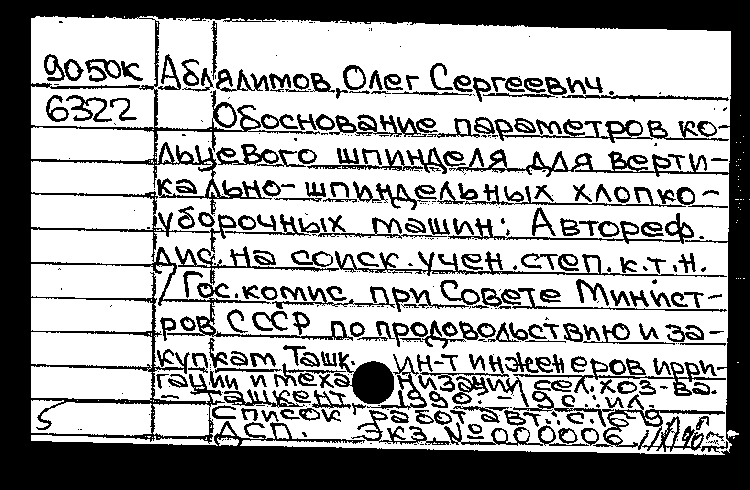 9050к Аблялимов, Олег Сергеевич.
6322 Обоснование параметров ко-
льцевого шпинделя для верти-
кально-шпиндельных хлопко-
уборочных машин: Автореф.
дис. на соиск. учен. степ. к.т.н.
/ Гос. комис. при Совете Минист-
ров СССР по продовольствию и за-
купкам, Ташк. ин-т инженеров ирри-
гации и механизации сел. хоз-ва.
– Ташкент, 1990. – 19 с.: ил.
Список работ авт.: с. 16-
ДСП. Экз. № 000006.
5